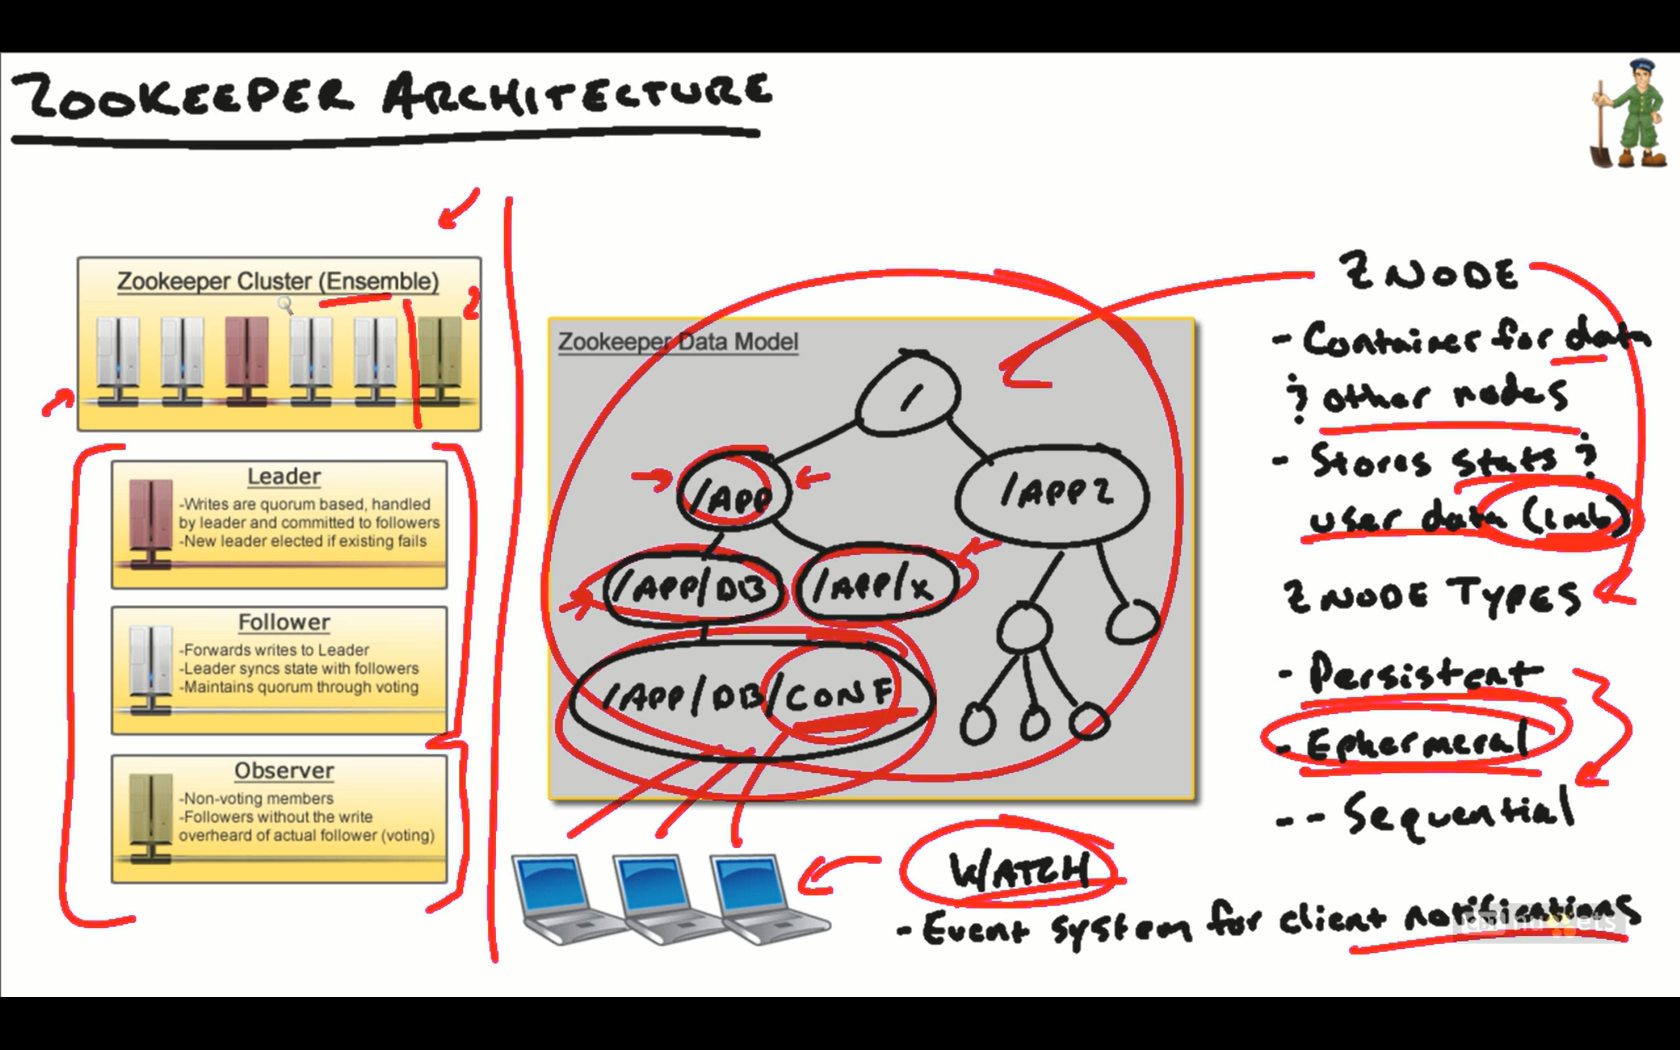 ZOOKEEPER ARCHITECTURE
Zookeeper Cluster (Ensemble)
2
Leader
-Writes are quorum based, handled
by leader and committed to followers
-New leader elected if existing fails
Follower
-Forwards writes to Leader
-Leader syncs state with followers
-Maintains quorum through voting
Observer
-Non-voting members
-Followers without the write
overheard of actual follower (voting)
Zookeeper Data Model
/
/APP
/APP2
/APP/DB
/APP/X
/APP/DB/CONF
ZNODE
- Container for data
& other nodes
- Stores stats &
user data (1mb)
ZNODE TYPES
- Persistent
- Ephermeral
-- Sequential
WATCH
- Event system for client notifications